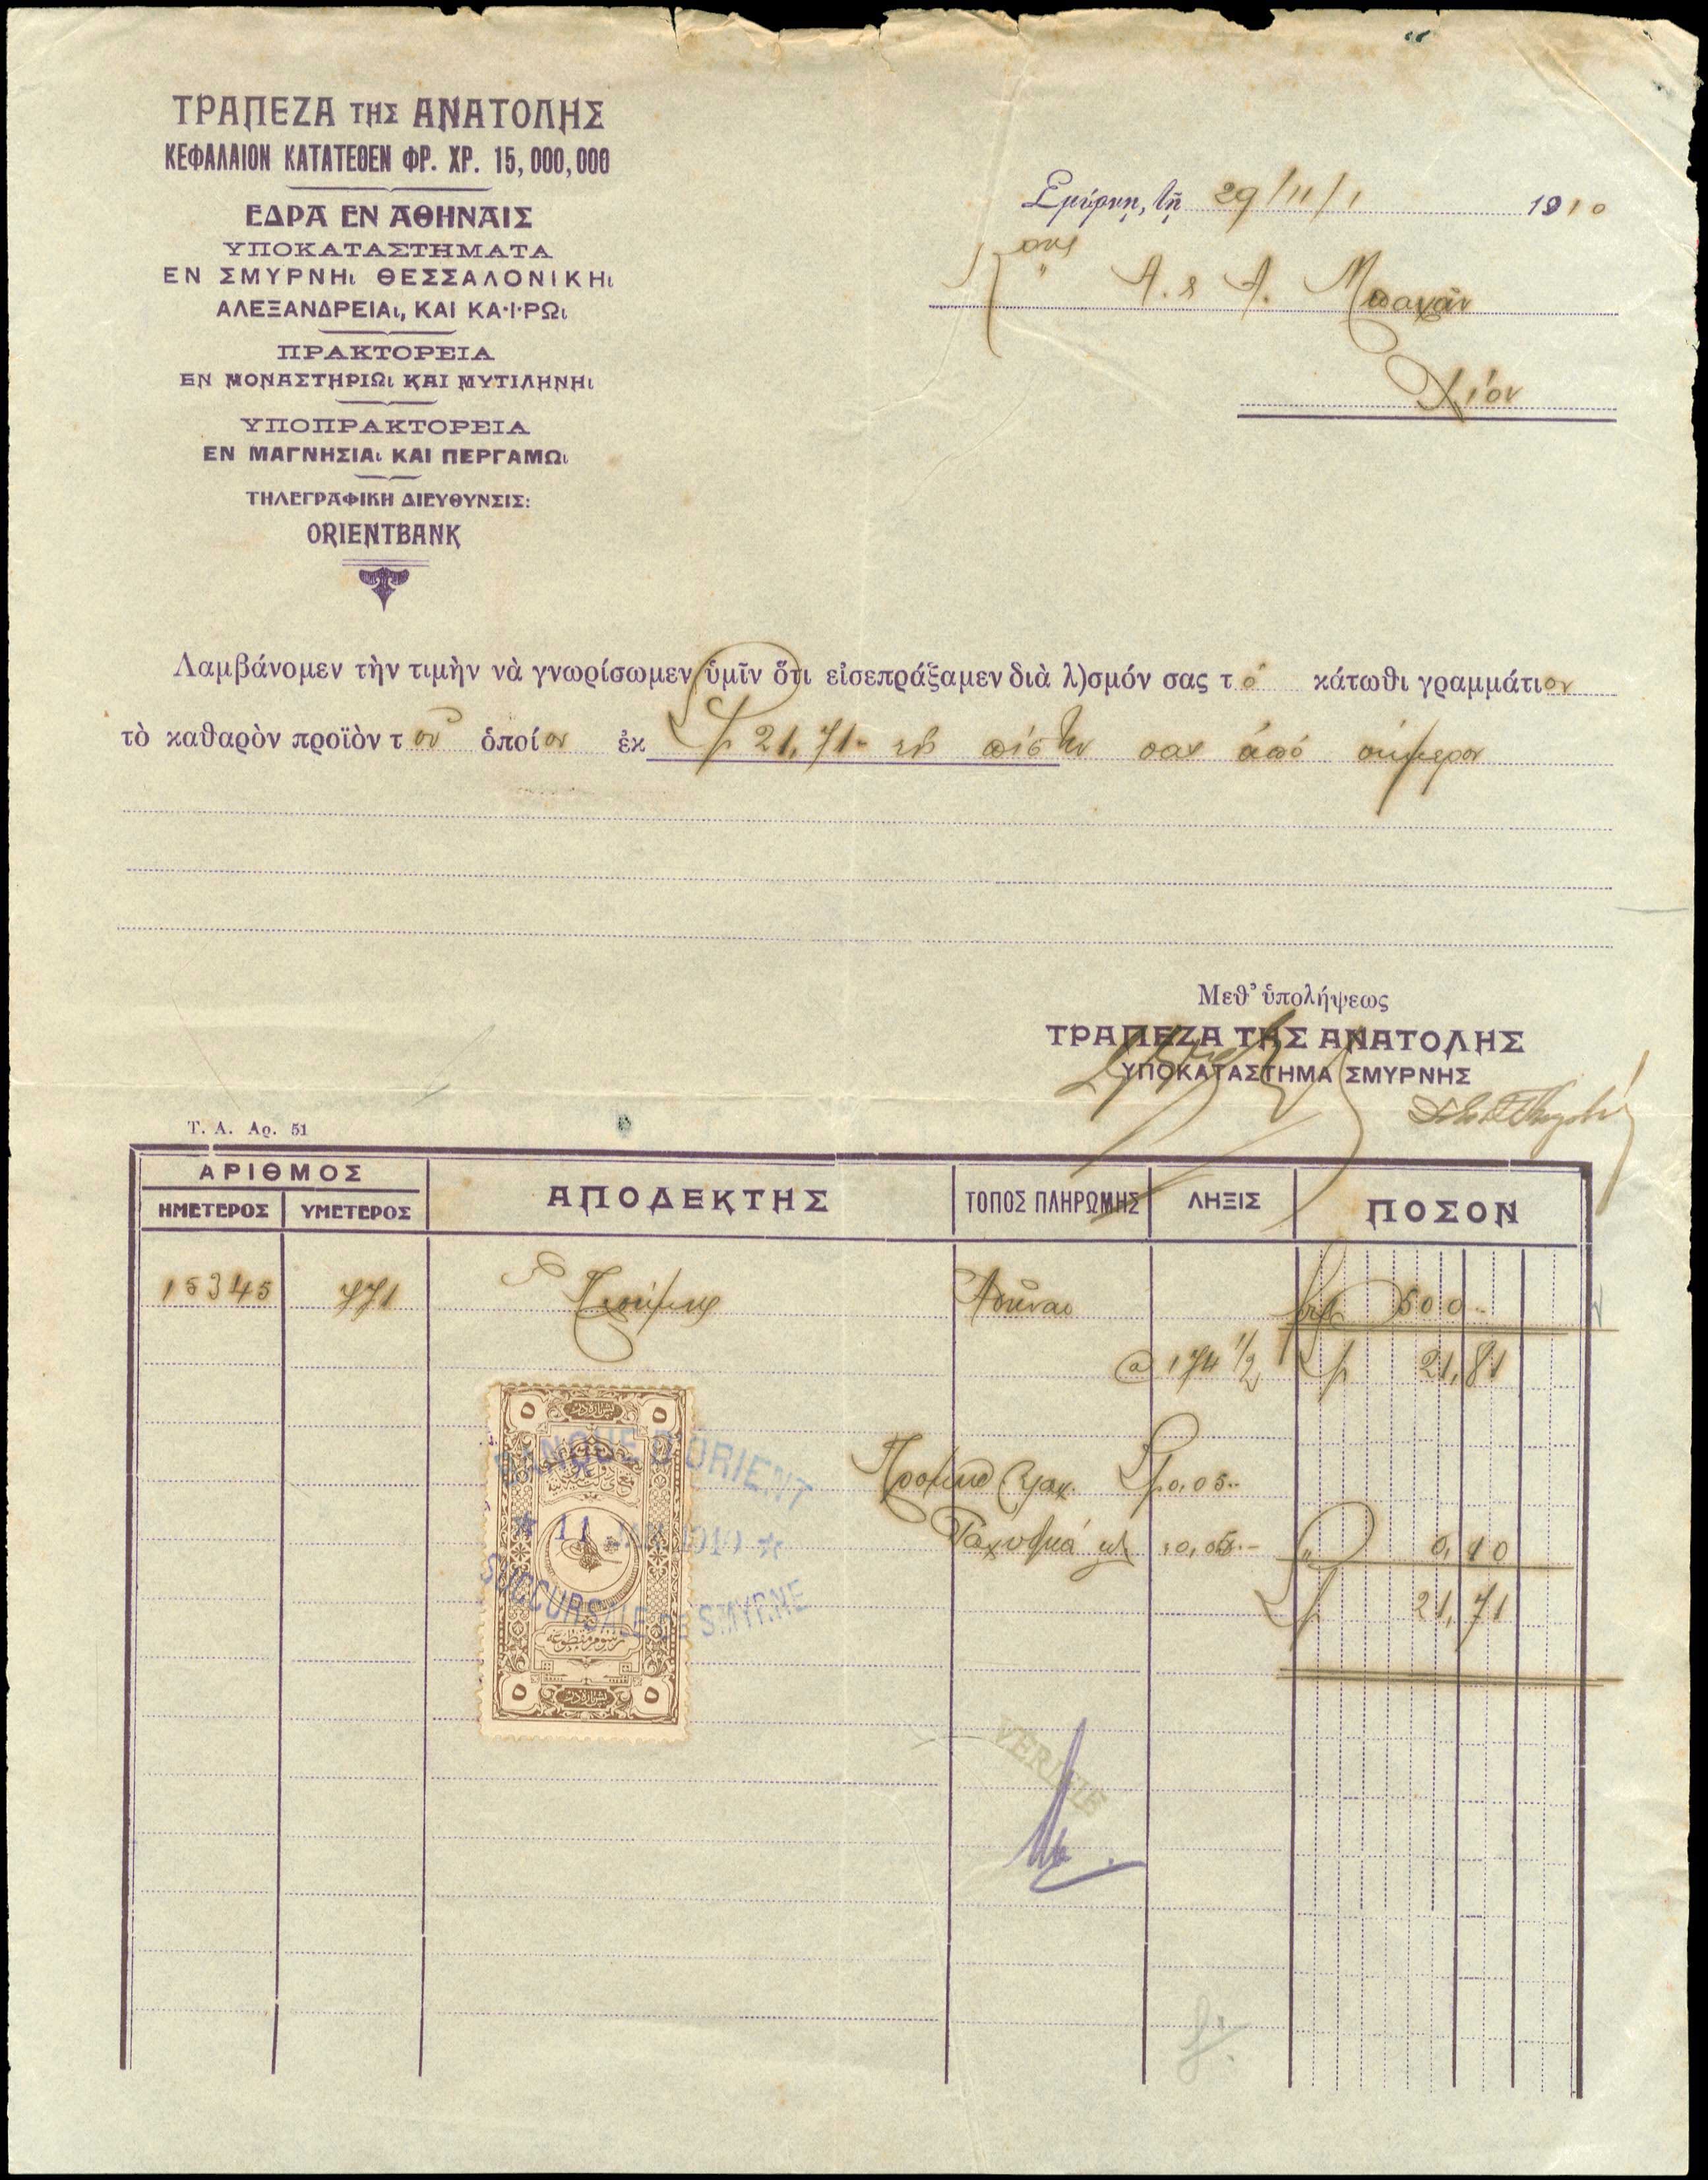 ΤΡΑΠΕΖΑ ΤΗΣ ΑΝΑΤΟΛΗΣ
ΚΕΦΑΛΑΙΟΝ ΚΑΤΑΤΕΘΕΝ ΦΡ. ΧΡ. 15,000,000
ΕΔΡΑ ΕΝ ΑΘΗΝΑΙΣ
ΥΠΟΚΑΤΑΣΤΗΜΑΤΑ
ΕΝ ΣΜΥΡΝΗι ΘΕΣΣΑΛΟΝΙΚΗι
ΑΛΕΞΑΝΔΡΕΙΑι, ΚΑΙ ΚΑ·Ι·ΡΩι
ΠΡΑΚΤΟΡΕΙΑ
ΕΝ ΜΟΝΑΣΤΗΡΙΩι ΚΑΙ ΜΥΤΙΛΗΝΗι
ΥΠΟΠΡΑΚΤΟΡΕΙΑ
ΕΝ ΜΑΓΝΗΣΙΑι ΚΑΙ ΠΕΡΓΑΜΩι
ΤΗΛΕΓΡΑΦΙΚΗ ΔΙΕΥΘΥΝΣΙΣ:
ORIENTBANK
Σμύρνῃ, τῇ 29/11/1 1910
Α. & Α.
Χίον
Λαμβάνομεν τὴν τιμὴν νὰ γνωρίσωμεν ὑμῖν ὅτι εἰσεπράξαμεν διὰ λ)σμόν σας τὸ κάτωθι γραμμάτιον
τὸ καθαρὸν προϊὸν τοῦ ὁποίον ἐκ 21,71 πίστιν σας ἀπὸ σήμερον
Μεθ' ὑπολήψεως
ΤΡΑΠΕΖΑ ΤΗΣ ΑΝΑΤΟΛΗΣ
ΥΠΟΚΑΤΑΣΤΗΜΑ ΣΜΥΡΝΗΣ
Τ. Α. Αρ. 51
ΑΡΙΘΜΟΣ
ΗΜΕΤΕΡΟΣ ΥΜΕΤΕΡΟΣ ΑΠΟΔΕΚΤΗΣ ΤΟΠΟΣ ΠΛΗΡΩΜΗΣ ΛΗΞΙΣ ΠΟΣΟΝ
15345 771 Ἀθήνας 500
@ 174 1/2 21,81
0,05
0,05 0,10
21,71
BANQUE D'ORIENT
★ 11 JAN 1910 ★
SUCCURSALE DE SMYRNE
٥ بش پاره در ٥
رسوم منظومه
٥ بش پاره در ٥
VERIFIE